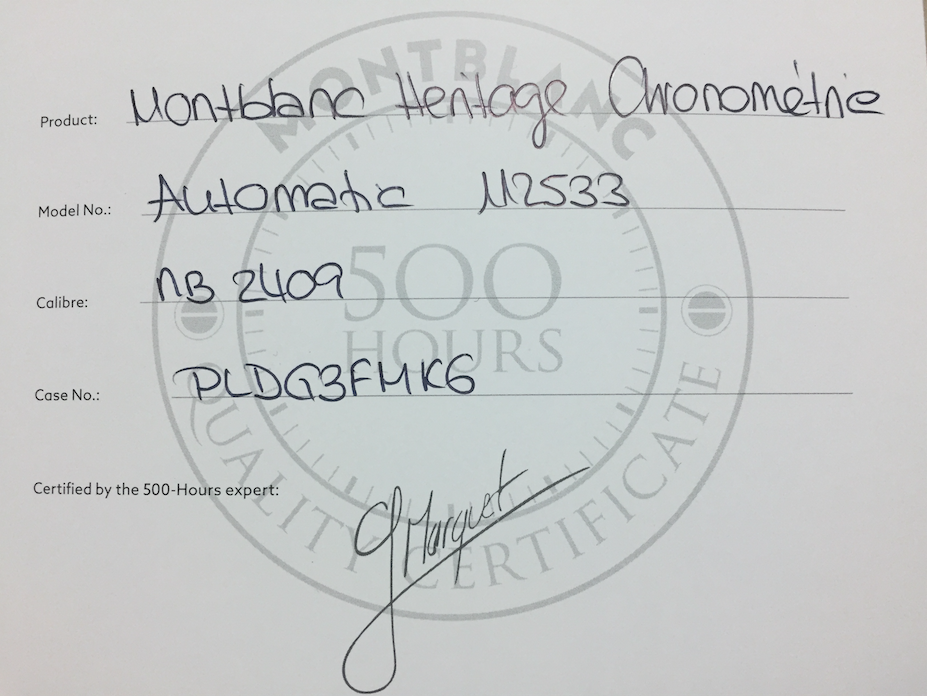 Product: Montblanc Heritage Chronométrie
Model No.: Automatic 112533
Calibre: MB 2409
Case No.: PLDG3FMK6
Certified by the 500-Hours expert:
G Marquet
MONTBLANC
500
HOURS
QUALITY CERTIFICATE